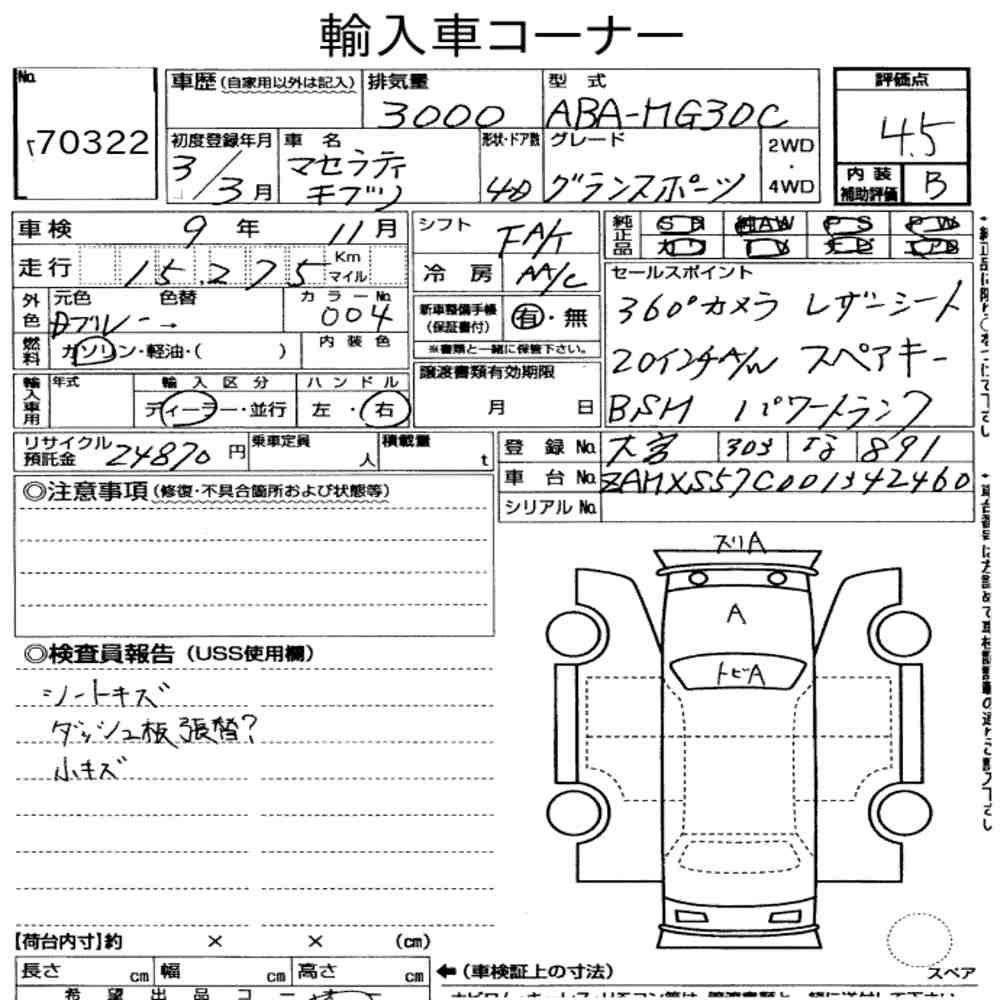 輸入車コーナー
No. 70322
車歴 (自家用以外は記入) 排気量 3000 型式 ABA-MG30C 評価点 4.5
初度登録年月 3/3月 車名 マセラティ ギブリ 形状・ドア数 4D グレード グランスポーツ 2WD・4WD 内装補助評価 B
車検 9年 11月 シフト FA/T 純正品 SR 純AW PS PW
走行 15,275 Km マイル 冷房 AA/C カワ TV ナビ エアB
外色 元色 Dブルー→ 色替 カラーNo. 004 新車整備手帳(保証書付) 有・無 セールスポイント
※書類と一緒に保管下さい。 360°カメラ レザーシート
燃料 ガソリン・軽油・( ) 内装色 20インチA/W スペアキー
輸入車用 年式 輸入区分 ディーラー・並行 ハンドル 左・右 譲渡書類有効期限 月 日 BSM パワートランク
リサイクル預託金 24870円 乗車定員 人 積載量 t 登録No. 大宮 303 な 891
車台No. ZAMXS57C001342460
シリアルNo.
◎注意事項(修復・不具合箇所および状態等)
スリA
A
トビA
◎検査員報告(USS使用欄)
シートキズ
ダッシュ板張替?
小キズ
【荷台内寸】約 × × (cm)
長さ cm 幅 cm 高さ cm ←(車検証上の寸法) スペア
希望出品コーナー